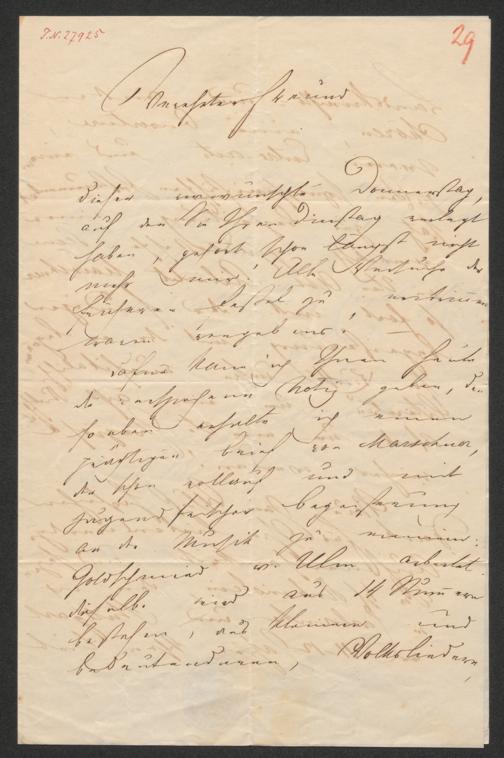 I.N. 27925
29
Verehrter Freund
dieser erwünschte Donnerstag,
auf den Sie Ihren Dienstag verlegt
haben, gehört schon längst nicht
mehr mir! Alle Versuche der
früheren Fessel zu
waren vergebens! —
dafür kann ich Ihnen heute
die versprochene Notiz geben, denn
so eben erhalte ich einen
Brief von Marschner,
der schon vollauf und mit
jugendfrischer Begeisterung
an der Musik zu meinem:
Goldschmied v. Ulm arbeitet.
dieselbe wird aus 14 Nummern
bestehen, aus kleinen und
bedeutenderen, Volksliedern,